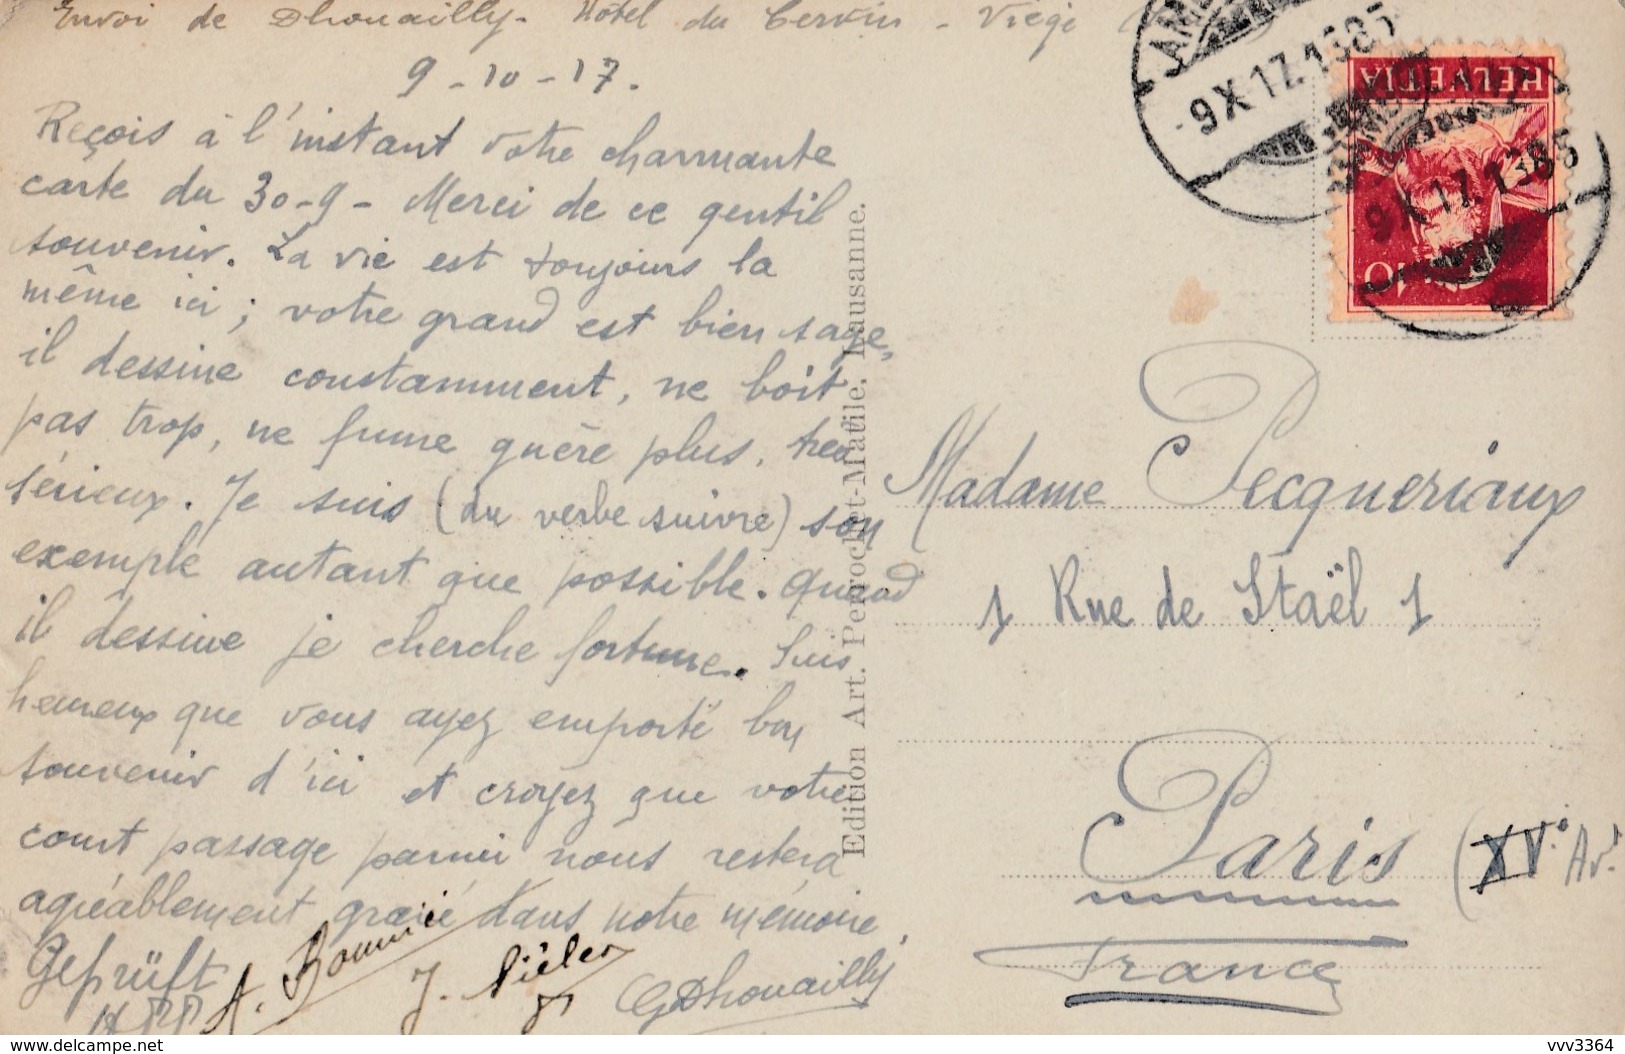 Envoi de Dhouailly - Hôtel du Cervin - Viège
9-10-17.
Reçois à l'instant votre charmante
carte du 30-9 - Merci de ce gentil
souvenir. La vie est toujours la
même ici ; votre grand est bien sage,
il dessine constamment, ne boit
pas trop, ne fume guère plus, très
sérieux. Je suis (du verbe suivre) son
exemple autant que possible. Quand
il dessine je cherche fortune. Suis
heureux que vous ayez emporté bon
souvenir d'ici et croyez que votre
court passage parmi nous restera
agréablement gravé dans notre mémoire.
Geprüft
A.
J.
GDhouailly
Edition Art. Perrochet-Matile, Lausanne.
-9 X 17. 1385
HELVETIA
10
9 X 17. 1385
Madame Pecqueriaux
1 Rue de Staël 1
Paris (XVe Arr.
France
www.delcampe.net
vvv3364